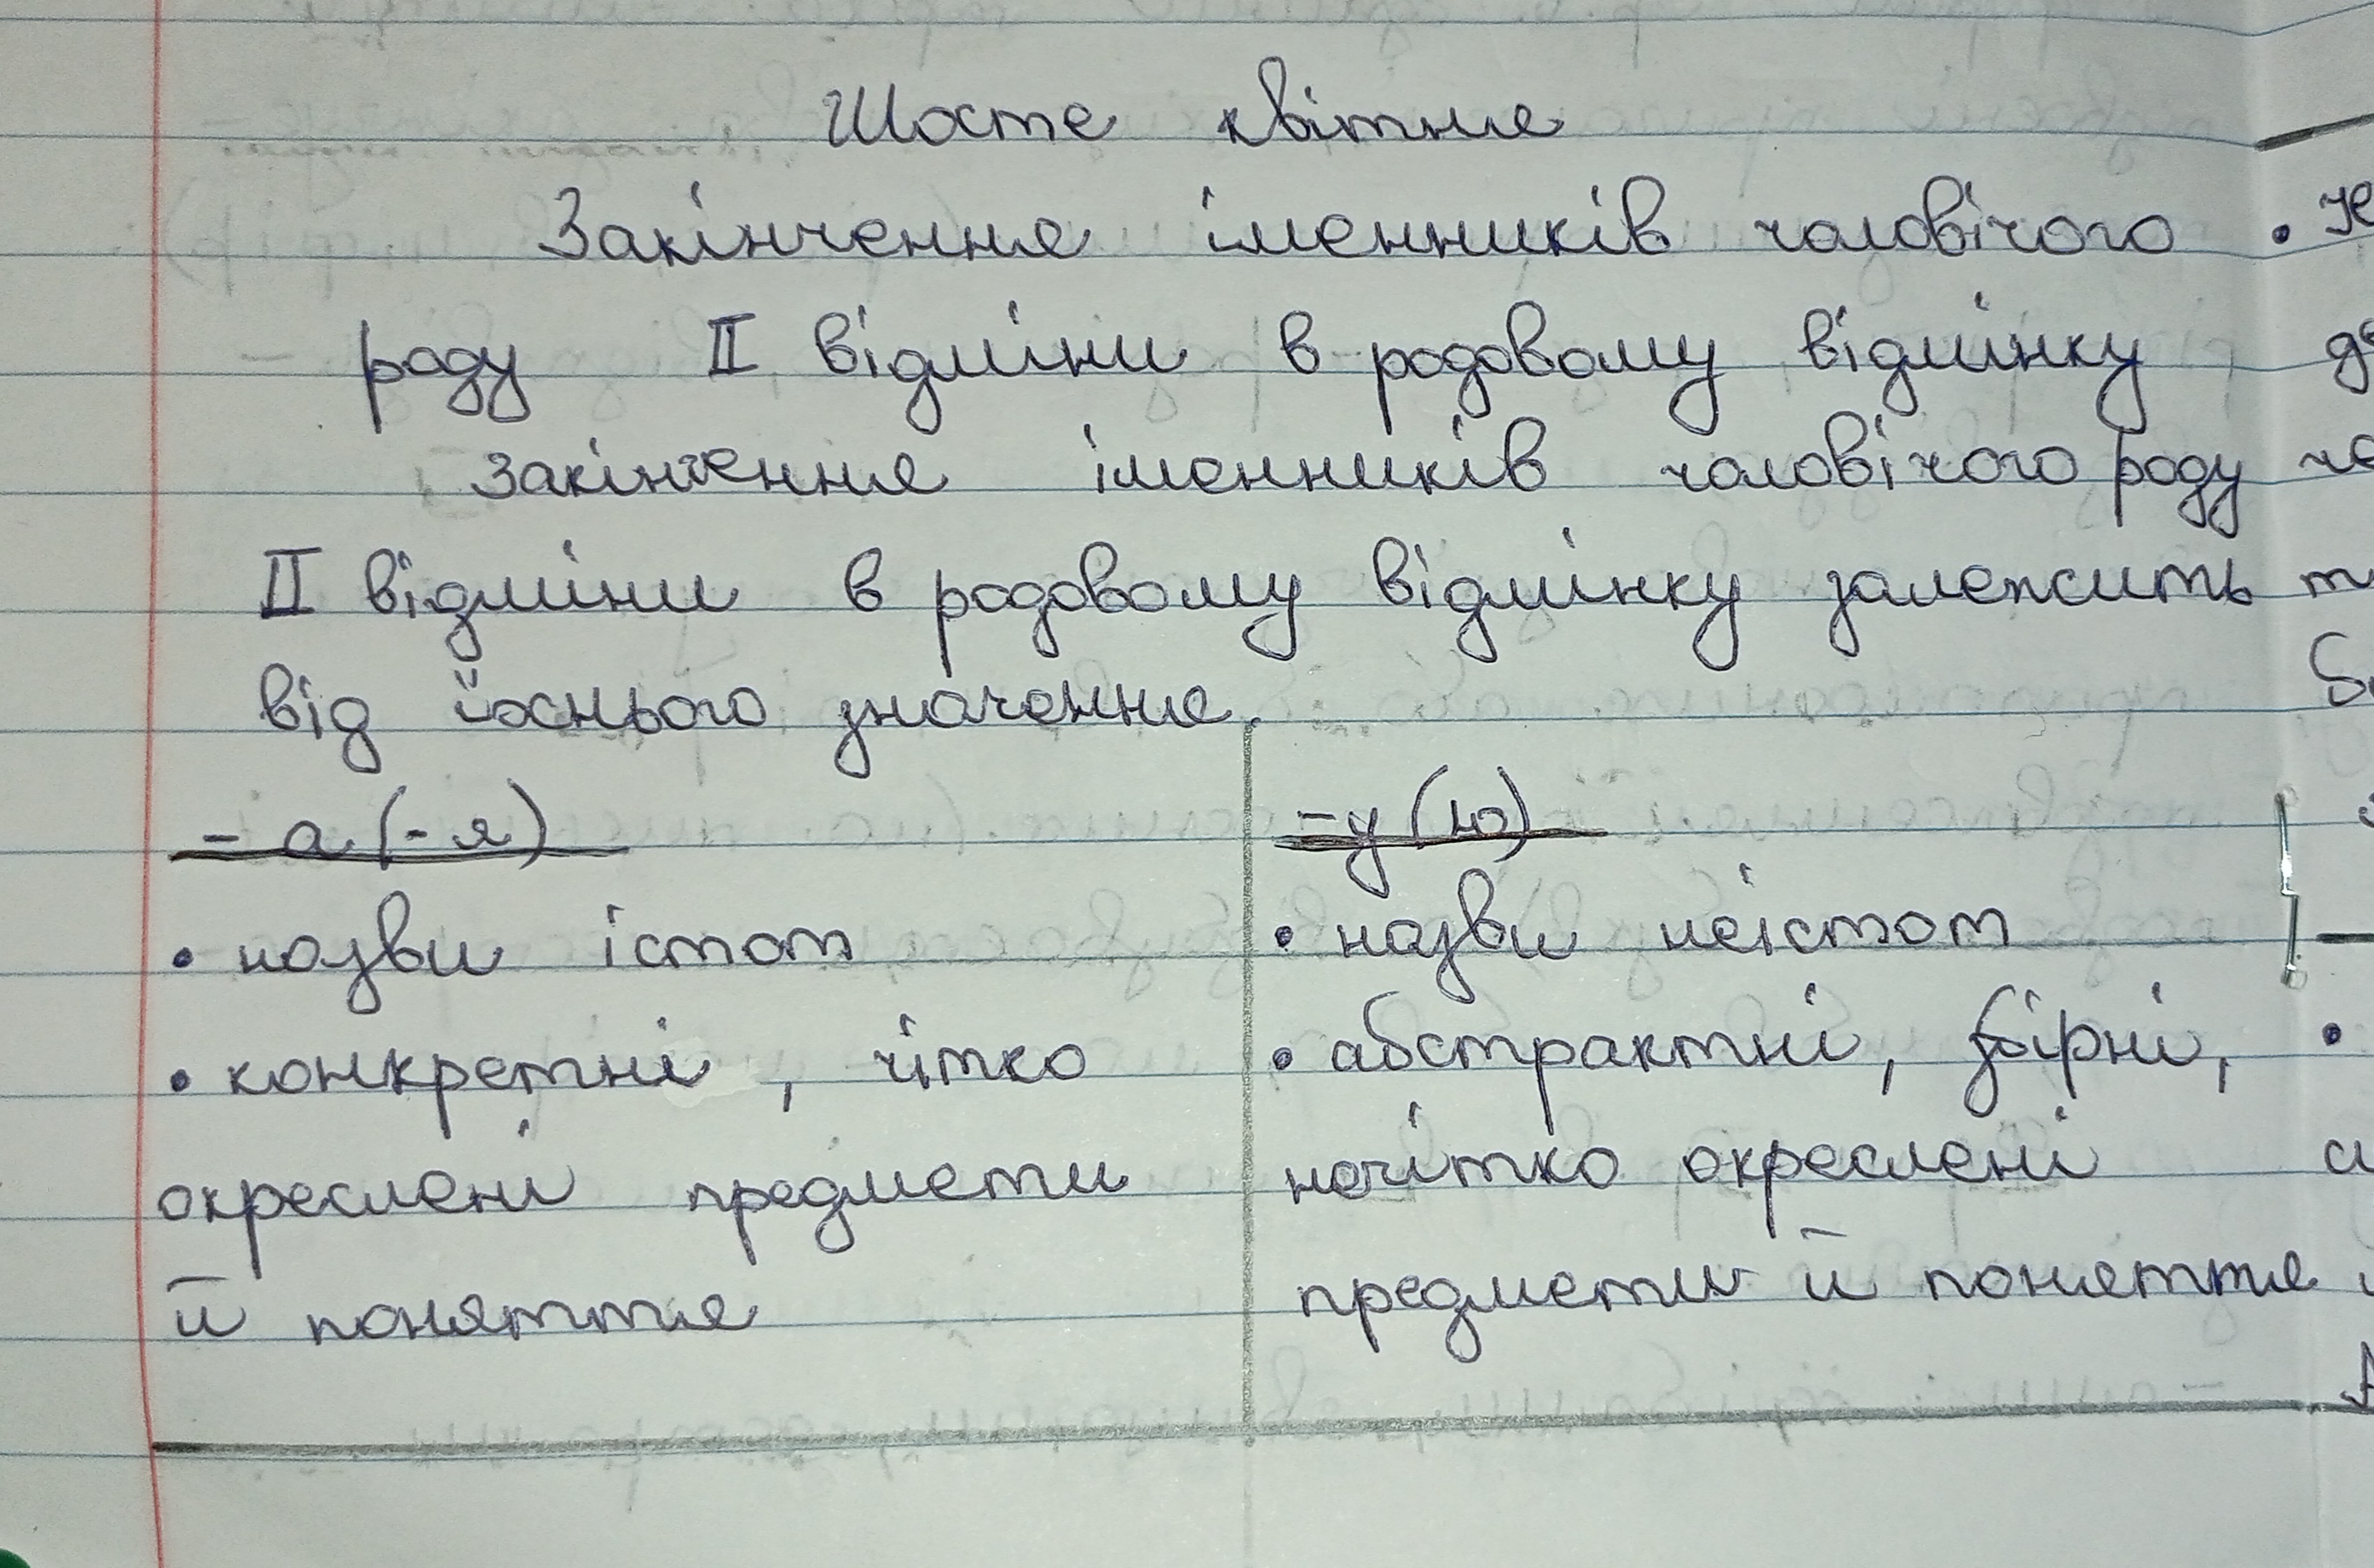 Шосте квітня
Закінчення іменників чоловічого
роду II відміни в родовому відмінку
Закінчення іменників чоловічого роду
II відміни в родовому відмінку залежить
від їхнього значення.
- а (-я)
• назви істот
• конкретні , чітко
окреслені предмети
й поняття
-у (ю)
• назви неістот
• абстрактні, збірні,
нечітко окреслені
предмети й поняття